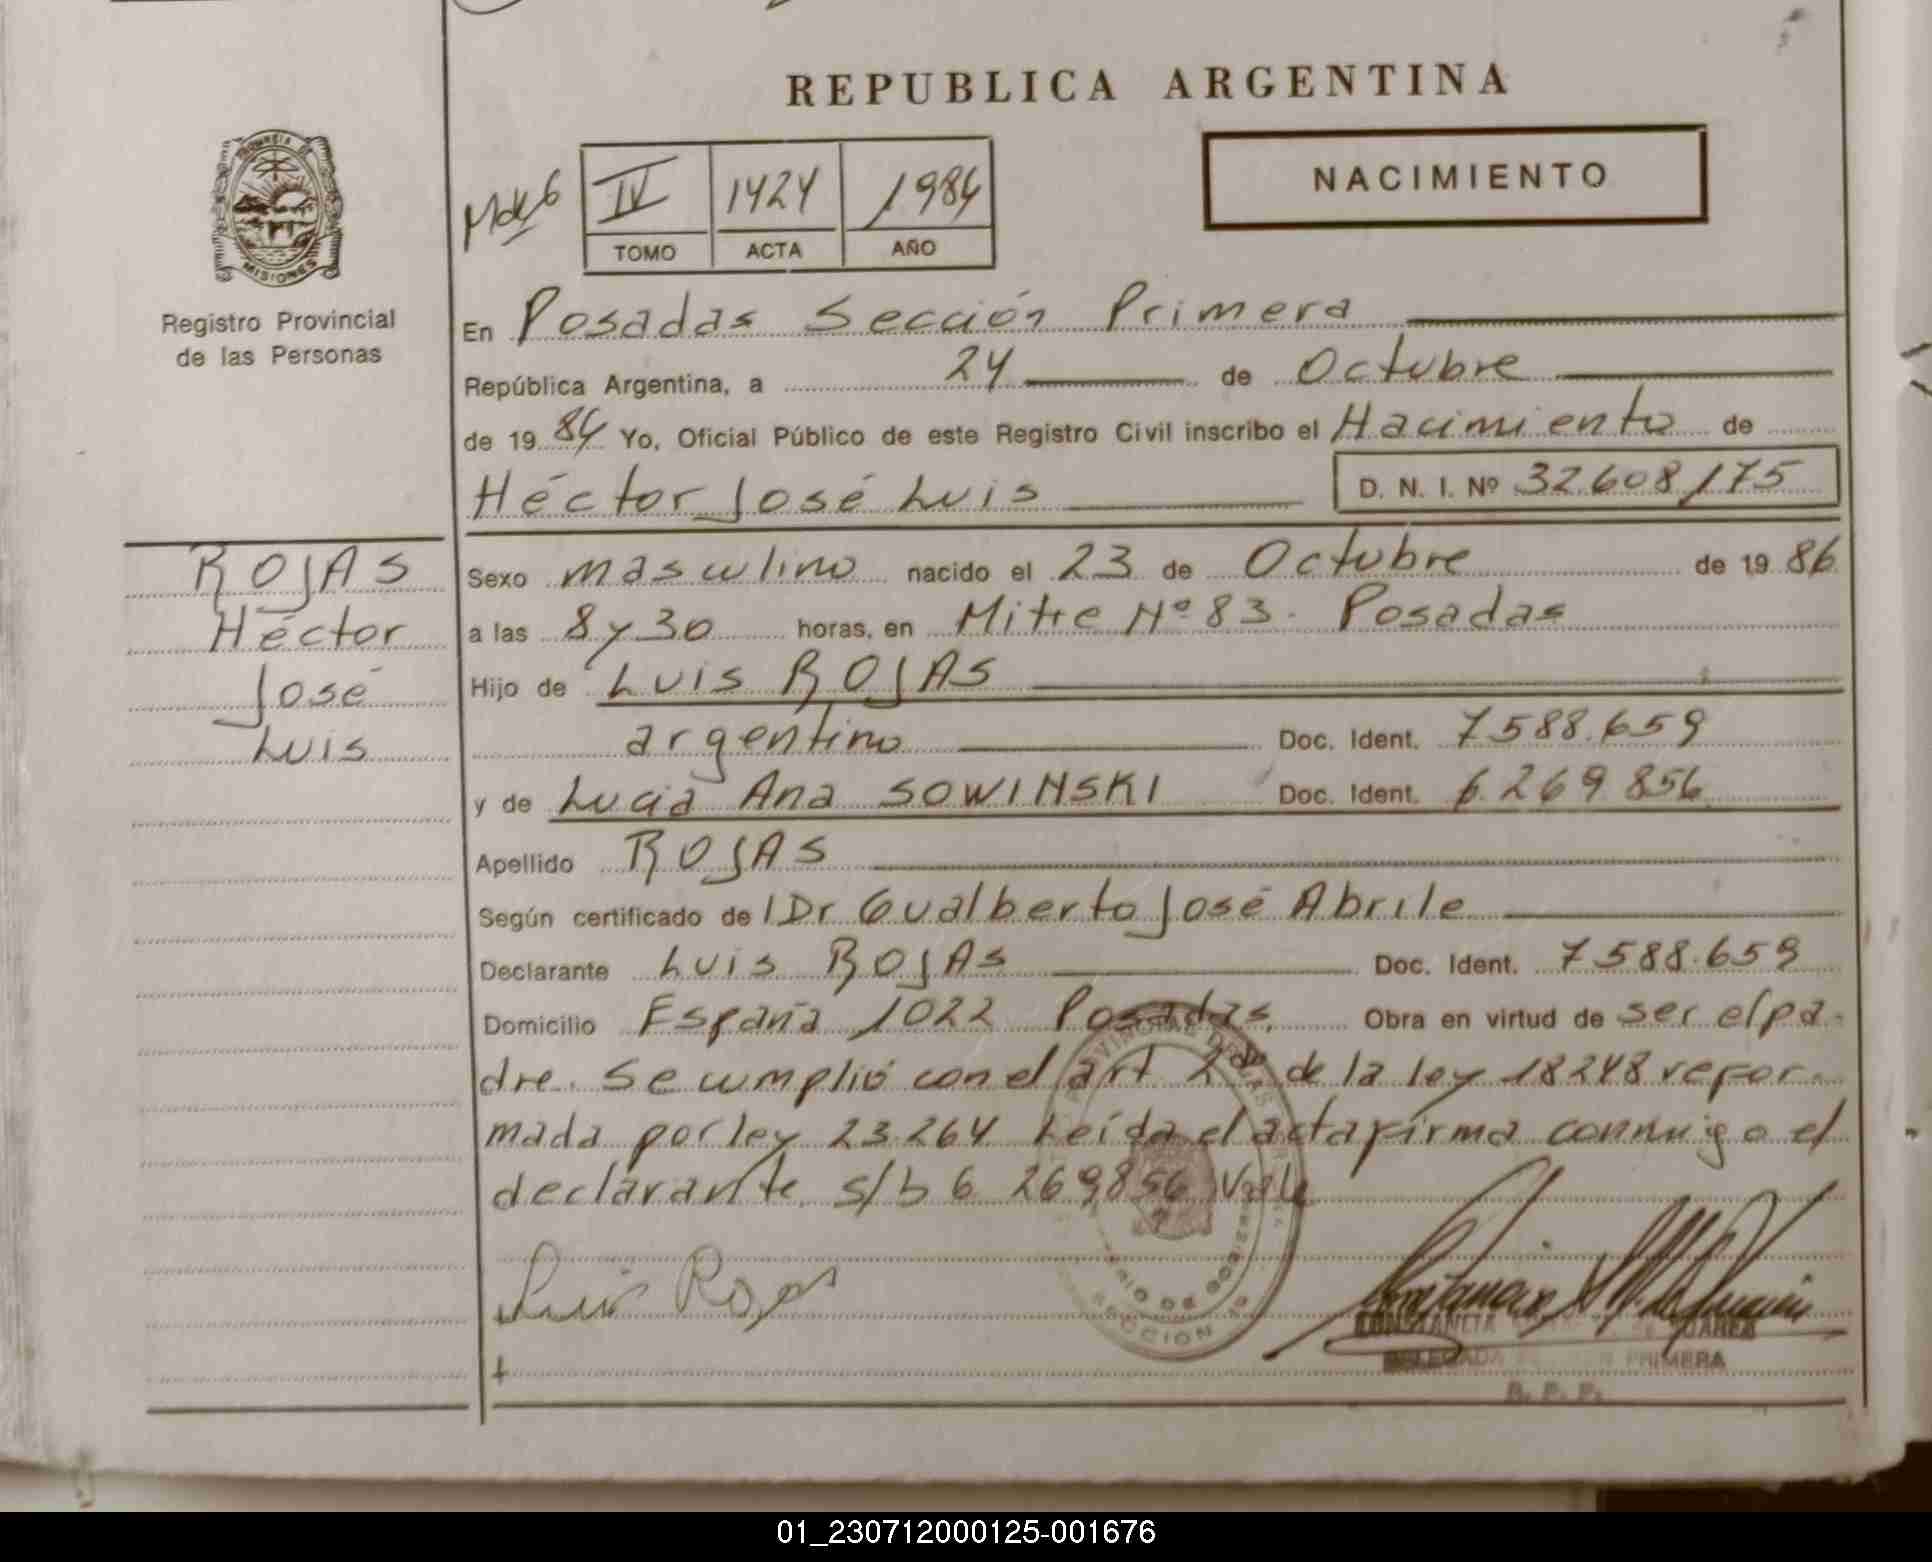 REPUBLICA ARGENTINA
NACIMIENTO
IV 1424 1986
TOMO ACTA AÑO
PROVINCIA DE
MISIONES
Registro Provincial
de las Personas
En Posadas Sección Primera
República Argentina, a 24 de Octubre
de 1986 Yo, Oficial Público de este Registro Civil inscribo el Nacimiento de
Héctor José Luis D. N. I. Nº 32.608.175
ROJAS
Héctor
José
Luis
Sexo masculino nacido el 23 de Octubre de 19 86
a las 8 y 30 horas, en Mitre Nº 83. Posadas
Hijo de Luis ROJAS
argentino Doc. Ident. 7.588.659
y de Lucia Ana SOWINSKI Doc. Ident. 6.269.856
Apellido ROJAS
Según certificado de l Dr Gualberto José Abrile
Declarante Luis ROJAS Doc. Ident. 7.588.659
Domicilio España 1022 Posadas, Obra en virtud de ser el pa-
dre. Se cumplió con el art 2do de la ley 18248 refor-
mada por ley 23.264 Leída el acta firma conmigo el
declarante. s/b 6 269856 Vale
Luis Rojas
DELEGADA PRIMERA
R. P. P.
01_230712000125-001676